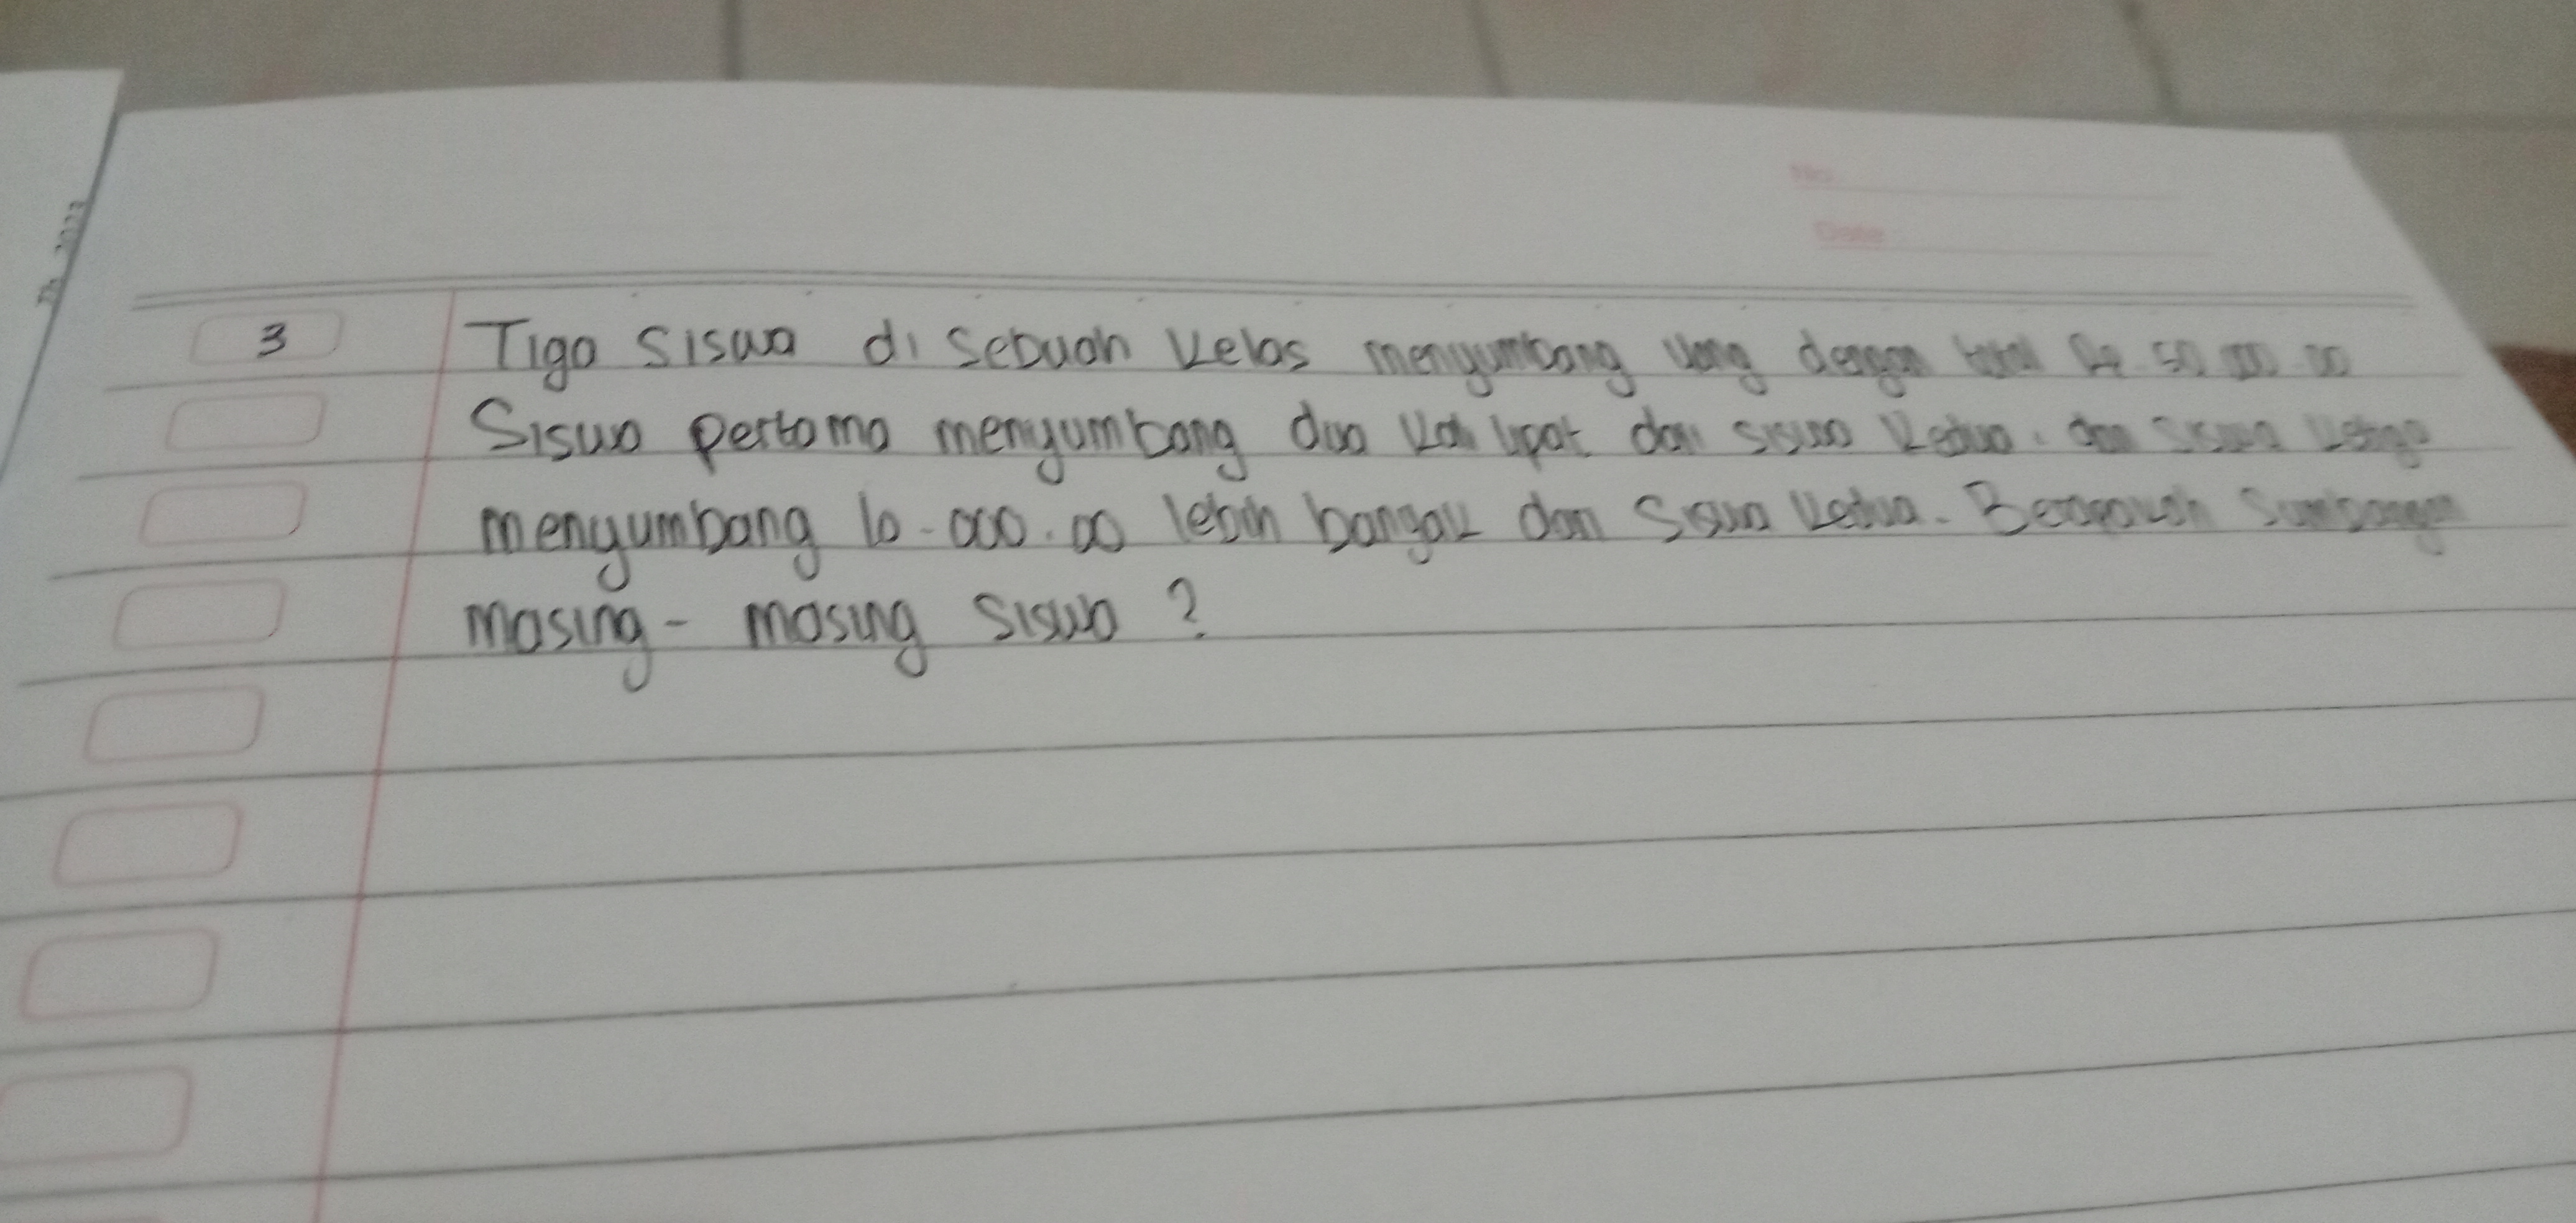 No
Date
3 Tiga siswa di sebuah kelas menyumbang uang dengan total Rp 50.000.00
Siswa pertama menyumbang dua kali lipat dari siswa kedua. dan siswa ketiga
menyumbang 10.000.00 lebih bangak dari siswa kedua. Berapakah sumbangan
masing - masing siswa ?